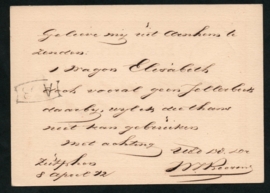 Gelieve mij uit Arnhem te
zenden
1 Wagon Elisabeth
doch vooral geen
daarbij, wijl ik die thans
niet kan gebruiken
met achting
Zutphen
8 April 72